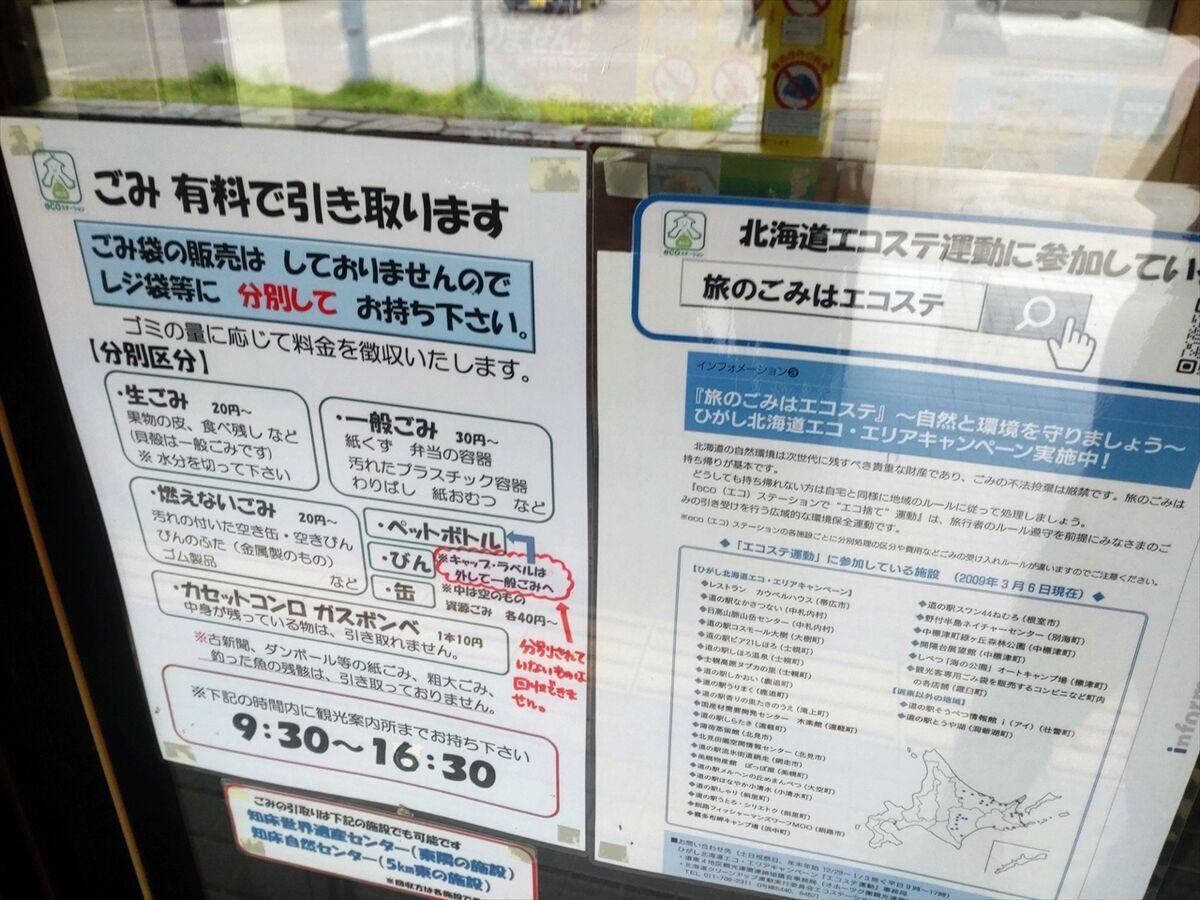 ecoステーション
ごみ 有料で引き取ります
ごみ袋の販売は しておりませんので
レジ袋等に 分別して お持ち下さい。
ゴミの量に応じて料金を徴収いたします。
【分別区分】
・生ごみ 20円～
果物の皮、食べ残し など
(貝殻は一般ごみです)
※ 水分を切って下さい
・一般ごみ 30円～
紙くず 弁当の容器
汚れたプラスチック容器
わりばし 紙おむつ など
・燃えないごみ 20円～
汚れの付いた空き缶・空きびん
びんのふた（金属製のもの）
ゴム製品 など
・ペットボトル
・びん
・缶
※キャップ・ラベルは
外して一般ごみへ
※中は空のもの
資源ごみ 各40円～
・カセットコンロ ガスボンベ 1本10円
中身が残っている物は、引き取れません。
分別されて
いないものは
回収できま
せん。
※古新聞、ダンボール等の紙ごみ、粗大ごみ、
釣った魚の残骸は、引き取っておりません。
※下記の時間内に観光案内所までお持ち下さい
9:30～16:30
ごみの引取りは下記の施設でも可能です
知床世界遺産センター(東隣の施設)
知床自然センター(5km東の施設)
ecoステーション
北海道エコステ運動に参加してい
旅のごみはエコステ
インフォメーション③
『旅のごみはエコステ』～自然と環境を守りましょう～
ひがし北海道エコ・エリアキャンペーン実施中！
北海道の自然環境は次世代に残すべき貴重な財産であり、ごみの不法投棄は厳禁です。旅のごみは
持ち帰りが基本です。
どうしても持ち帰れない方は自宅と同様に地域のルールに従って処理しましょう。
「eco（エコ）ステーションで“エコ捨て”運動」は、旅行者のルール遵守を前提にみなさまのご
みの引き受けを行う広域的な環境保全運動です。
※eco（エコ）ステーションの各施設ごとに分別処理の区分や費用などごみの受け入れルールが違いますのでご注意ください。
◆「エコステ運動」に参加している施設 （2009年3月6日現在）◆
【ひがし北海道エコ・エリアキャンペーン】
◆レストラン カウベルハウス（帯広市）
◆道の駅なかさつない（中札内村）
◆日高山脈山岳センター（中札内村）
◆道の駅コスモール大樹（大樹町）
◆道の駅ピア21しほろ（士幌町）
◆道の駅しほろ温泉（士幌町）
◆士幌高原ヌプカの里（士幌町）
◆道の駅しかおい（鹿追町）
◆道の駅うりまく（鹿追町）
◆道の駅香りの里たきのうえ（滝上町）
◆国産材需要開発センター 木楽館（遠軽町）
◆道の駅しらたき（遠軽町）
◆北見田園空間情報センター（北見市）
◆道の駅流氷街道網走（網走市）
◆美幌物産館 ぽっぽ屋（美幌町）
◆道の駅メルヘンの丘めまんべつ（大空町）
◆道の駅はなやか小清水（小清水町）
◆道の駅しゃり（斜里町）
◆道の駅うとろ・シリエトク（斜里町）
◆釧路フィッシャーマンズワーフMOO（釧路市）
◆霧多布岬キャンプ場（浜中町）
◆道の駅スワン44ねむろ（根室市）
◆野付半島ネイチャーセンター（別海町）
◆中標津町緑ヶ丘森林公園（中標津町）
◆開陽台展望館（中標津町）
◆しべつ「海の公園」オートキャンプ場（標津町）
◆観光客専用ごみ袋を販売するコンビニなど町内
の各店舗（羅臼町）
【道東以外の地域】
◆道の駅そうべつ情報館 i（アイ）（壮瞥町）
◆道の駅とうや湖（洞爺湖町）
■お問い合わせ先
ひがし北海道エコ・エリアキャンペーン「エコステ運動」事務局